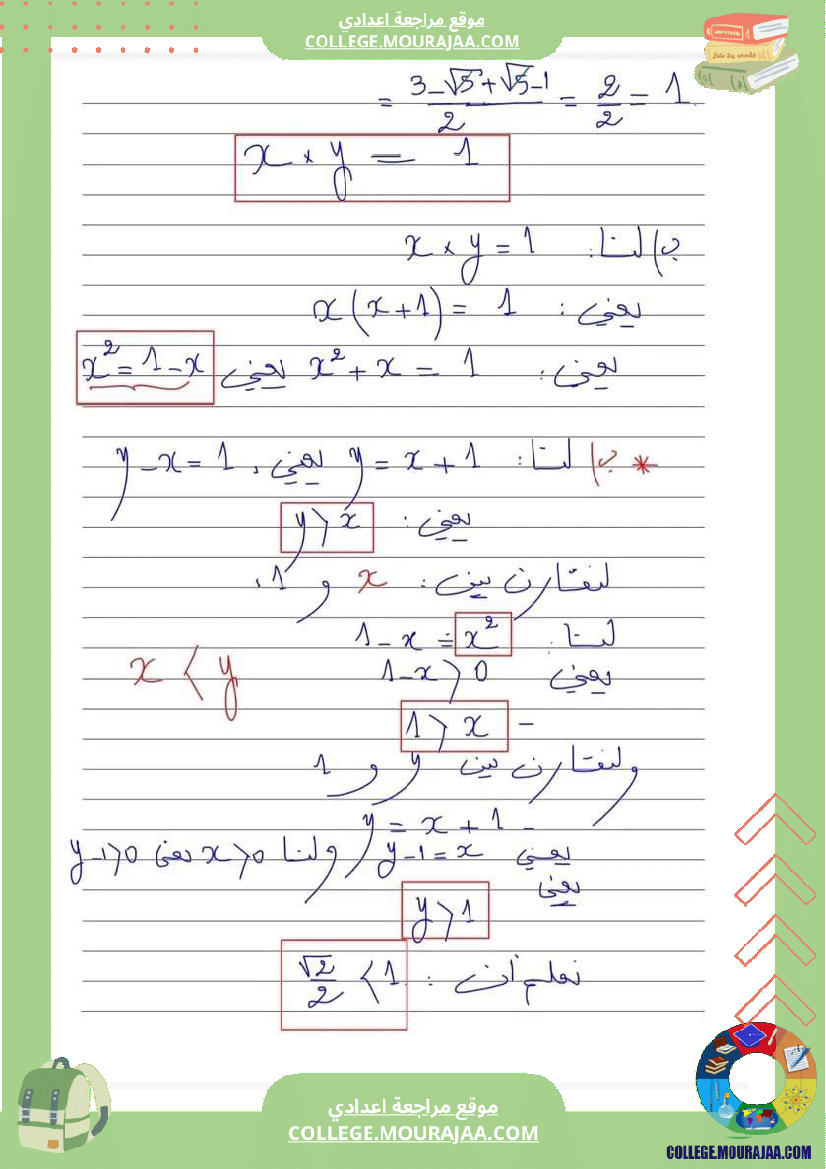 موقع مراجعة اعدادي
COLLEGE.MOURAJAA.COM
= (3-√5+√5-1)/2 = 2/2 = 1
x × y = 1
ب) لنا: x × y = 1
يعني: x(x+1) = 1
يعني: x² + x = 1 يعني x² = 1 - x
* ب) لنا: y = x + 1 يعني، y - x = 1
يعني: y > x
لنقارن بين: x و 1.
لنا: x² = 1 - x
يعني 1 - x > 0
x < y
- 1 > x
ولنقارن بين y و 1
- y = x + 1
يعني y - 1 = x ولنا x > 0 يعني y - 1 > 0
يعني
y > 1
نعلم أن: √2/2 < 1
موقع مراجعة اعدادي
COLLEGE.MOURAJAA.COM
COLLEGE.MOURAJAA.COM